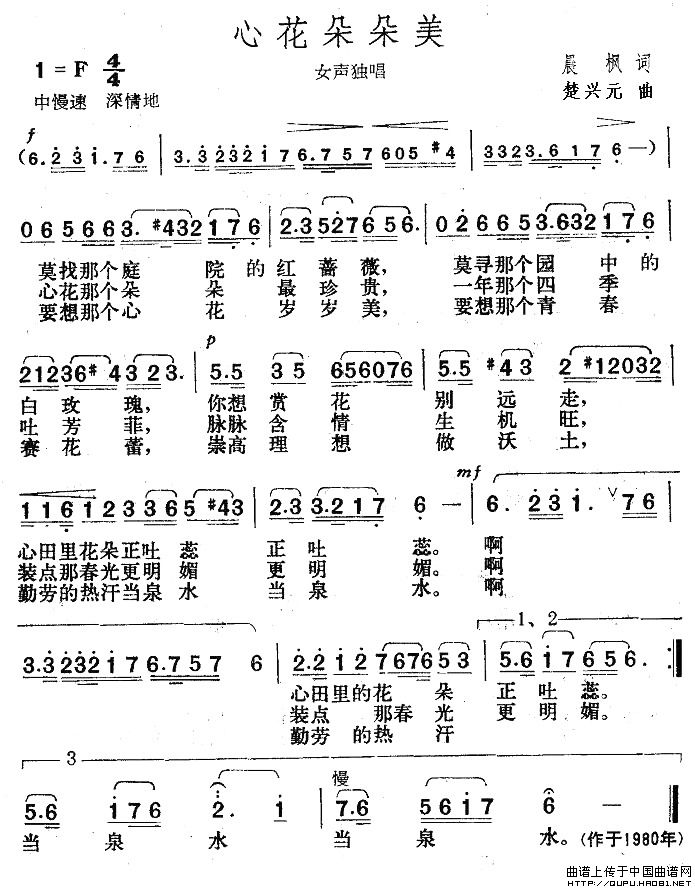 心花朵朵美
1=F 4/4
女声独唱
晨 枫 词
中慢速 深情地
楚兴元 曲
f
(6. 2 3 1. 7 6 | 3. 3 2 3 2 1 7 6. 7 5 7 6 0 5 #4 | 3 3 2 3. 6 1 7 6 —) |
0 6 5 6 6 3. #4 3 2 1 7 6 | 2. 3 5 2 7 6 5 6. | 0 2 6 6 5 3. 6 3 2 1 7 6 |
莫找那个庭 院的红蔷薇, 莫寻那个园 中的
心花那个朵 朵 最珍贵, 一年那个四 季
要想那个心 花 岁岁美, 要想那个青 春
p
2 1 2 3 6 #4 3 2 3. | 5. 5 3 5 6 5 6 0 7 6 | 5. 5 #4 3 2 #1 2 0 3 2 |
白玫瑰, 你想赏花 别远走,
吐芳菲, 脉脉含情 生机旺,
赛花蕾, 崇高理想 做沃土,
mf
1 1 6 1 2 3 3 6 5 #4 3 | 2. 3 3. 2 1 7 6 — | 6. 2 3 1. V 7 6
心田里花朵正吐蕊 正吐蕊。啊
装点那春光更明媚 更明媚。啊
勤劳的热汗当泉水 当泉水。啊
1、2
3. 3 2 3 2 1 7 6. 7 5 7 6 | 2. 2 1 2 7 6 7 6 5 3 | 5. 6 1 7 6 5 6. :|
心田里的花朵 正吐蕊。
装点那春光 更明媚。
勤劳的热汗
3
慢
5. 6 1 7 6 2. 1 | 7. 6 5 6 1 7 6 — ‖
当泉水 当泉水。(作于1980年)
曲谱上传于中国曲谱网
HTTP://QUPU.HAO81.NET